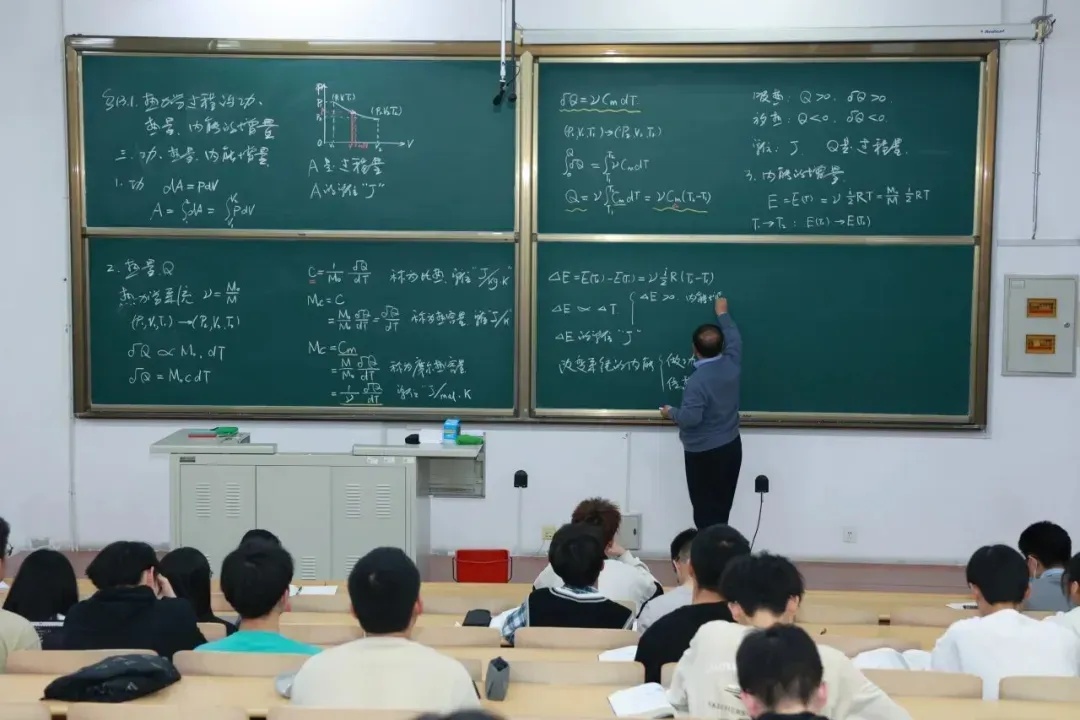 §13.1. 热力学过程的功、
热量、内能的增量
三. 功、热量、内能增量
1. 功 dA = PdV
A = ∫dA = ∫PdV
P
V
A是过程量
A的单位 "J"
2. 热量 Q
热力学系统 ν = M/M
(P₁V₁T₁) → (P₂V₂T₂)
đQ ∝ M₀, dT
đQ = M₀cdT
C = 1/M₀ đQ/dT 称为比热, 单位 "J/kg·K"
Mc = C
= M/M₀ đQ/dT = đQ/dT 称为热容量, 单位 J/K
Mc = Cm
= M/M₀ đQ/dT 称为摩尔热容量
= 1/ν đQ/dT 单位: J/mol·K
đQ = νCmdT
(P₁V₁T₁) → (P₂V₂T₂)
∫đQ = ∫νCmdT
Q = ν∫CmdT = νCm(T₂-T₁)
吸热: Q>0. đQ>0
放热: Q<0. đQ<0.
单位: J Q是过程量.
3. 内能的增量
E = E(T) = ν i/2 RT = M₀/M i/2 RT
T₁→T₂ : E(T₁) → E(T₂)
ΔE = E(T₂)-E(T₁) = ν i/2 R(T₂-T₁)
ΔE ∝ ΔT. { ΔE>0 内能
ΔE的单位 "J"
改变系统的内能 { 做功